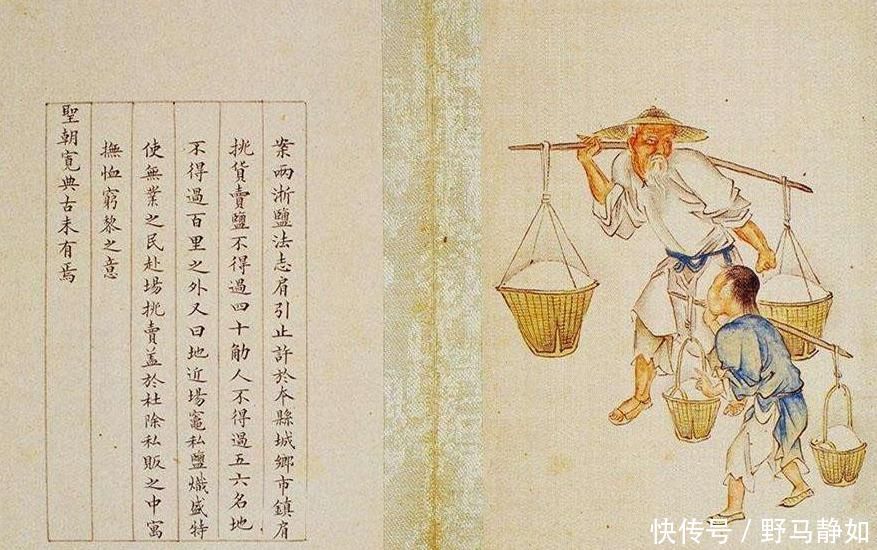 案兩浙鹽法志肩引止許於本縣城鄉市鎮肩
挑貨賣鹽不得過四十觔人不得過五六名地
不得過百里之外又曰地近場竈私鹽熾盛特
使無業之民赴場挑賣盖於杜除私販之中寓
撫恤窮黎之意
聖朝寬典古未有焉
快传号 / 野马静如